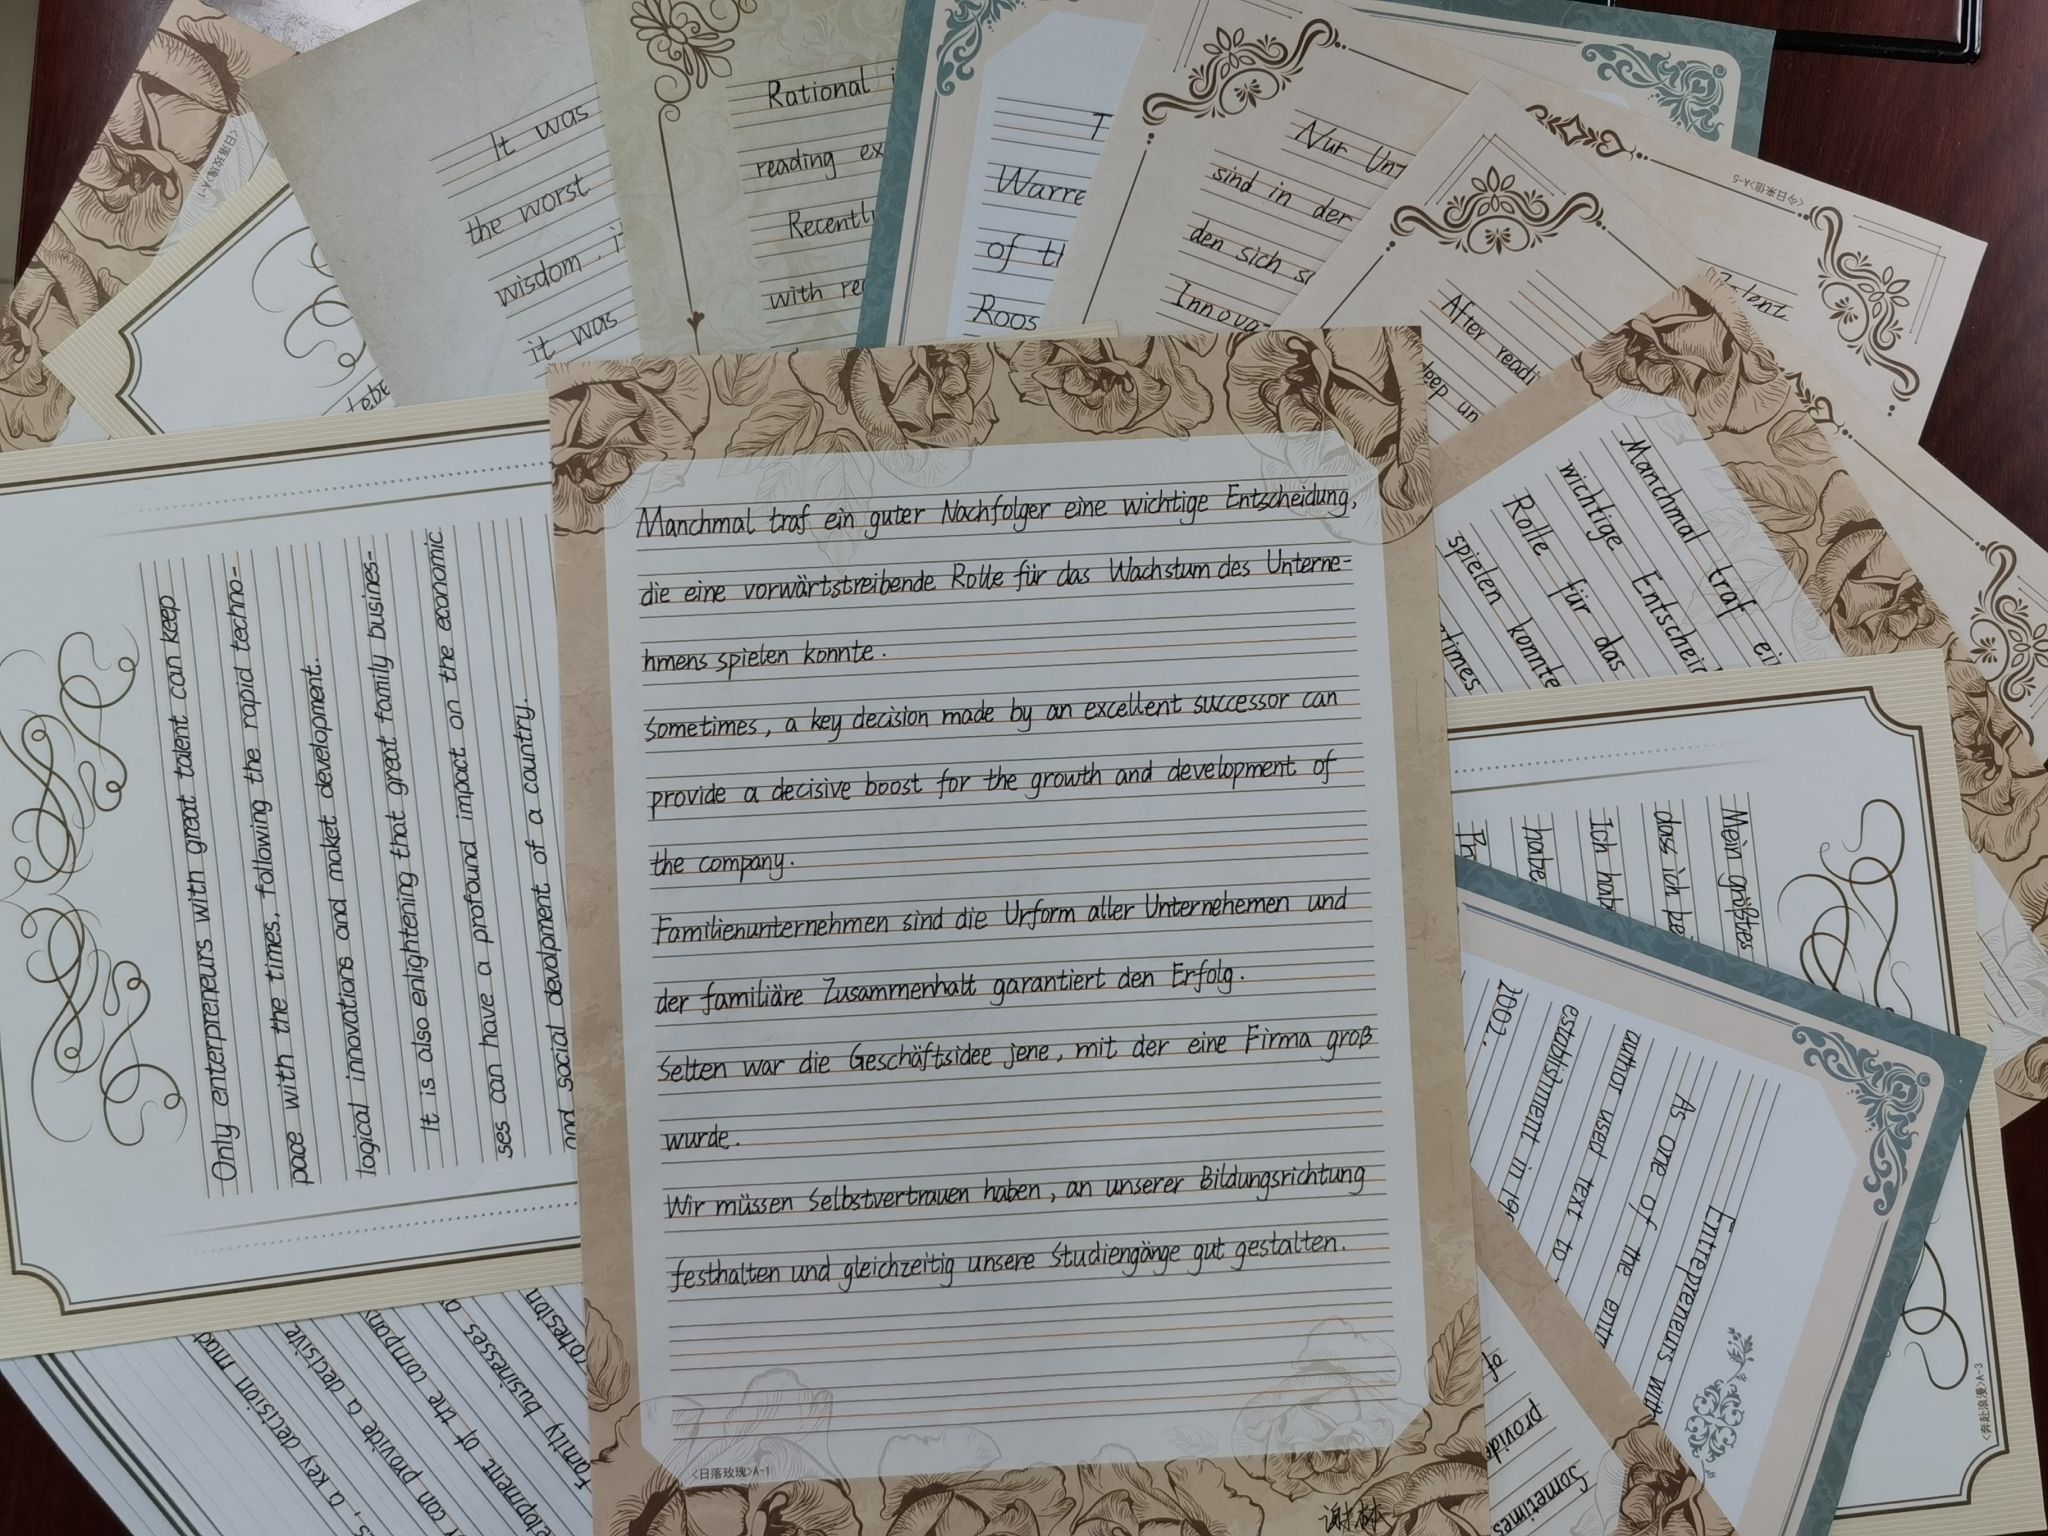 Manchmal traf ein guter Nachfolger eine wichtige Entscheidung,
die eine vorwärtstreibende Rolle für das Wachstum des Unterne-
hmens spielen konnte.
Sometimes, a key decision made by an excellent successor can
provide a decisive boost for the growth and development of
the company.
Familienunternehmen sind die Urform aller Unternehemen und
der familiäre Zusammenhalt garantiert den Erfolg.
Selten war die Geschäftsidee jene, mit der eine Firma groß
wurde.
Wir müssen Selbstvertrauen haben, an unserer Bildungsrichtung
festhalten und gleichzeitig unsere Studiengänge gut gestalten.
<日落玫瑰>A-1
谢林
Only enterpreneurs with great talent can keep
pace with the times, following the rapid techno-
logical innovations and market development.
It is also enlightening that great family busines-
ses can have a profound impact on the economic
and social devolpment of a country.
<日落玫瑰>A-1
It was
the worst
wisdom, i
it was
Rational i
reading ex
Recentl
with re
T
Warre
of th
Roos
Nur Unt
sind in der
den sich s
Innova
<今日来信>A-5
Talent
After readi
deep un
Manchmal traf ei
wichtige Entscheid
Rolle für das
spielen konnte
times
Mein größtes
dass ich pe
Ich hab
habe
Entrepreneurs wit
As one of the entr
author used text to
establishment in 19
2002.
<奔赴浪漫>A-3
Sometimes
provide
of
s, a key decision mad
r can provide a decisive
elopment of the company
Family businesses a
cohesion